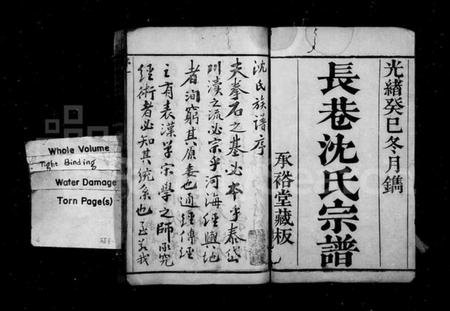 光緒癸巳冬月鐫
長巷沈氏宗譜
承裕堂藏板
沈氏族譜序
夫拳石之基必本乎泰岱
涓瀆之流必宗乎河海經輿地
者洵窮其原委也通經傳經
主有表漢學宋學之師承究
經術者必知其統系也至於我
Whole Volume
Tight Binding
Water Damage
Torn Page(s)